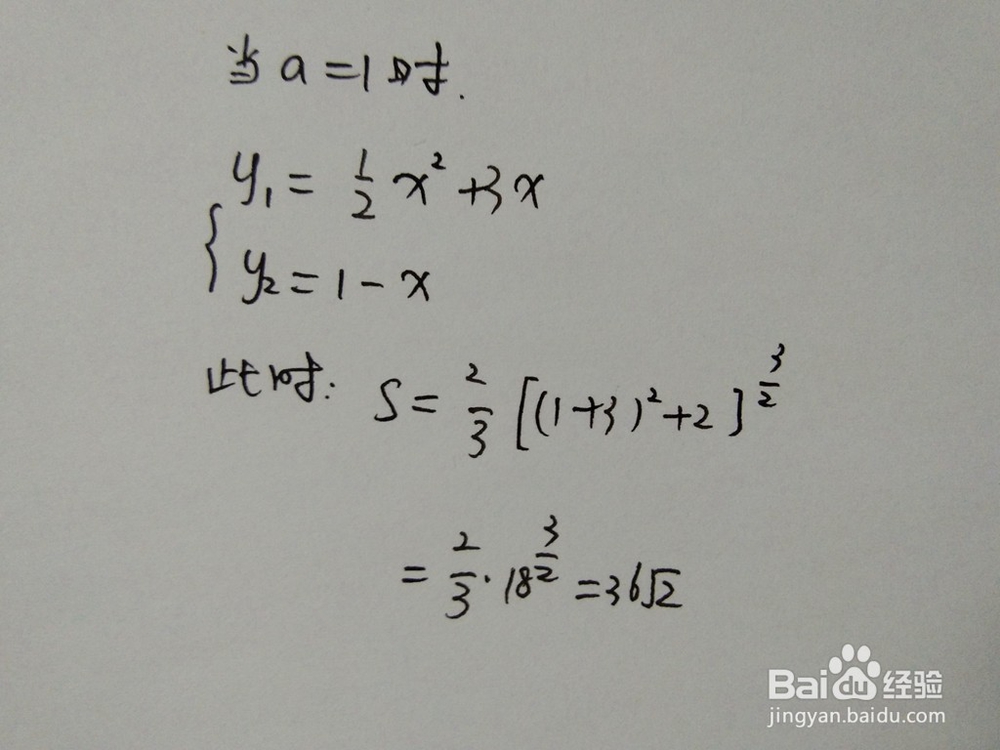 当 a = 1 时.
y₁ = 1/2 x² + 3x
{ y₂ = 1 - x
此时: S = 2/3 [(1+3)² + 2]^(3/2)
= 2/3 · 18^(3/2) = 36√2
Baidu 经验
jingyan.baidu.com